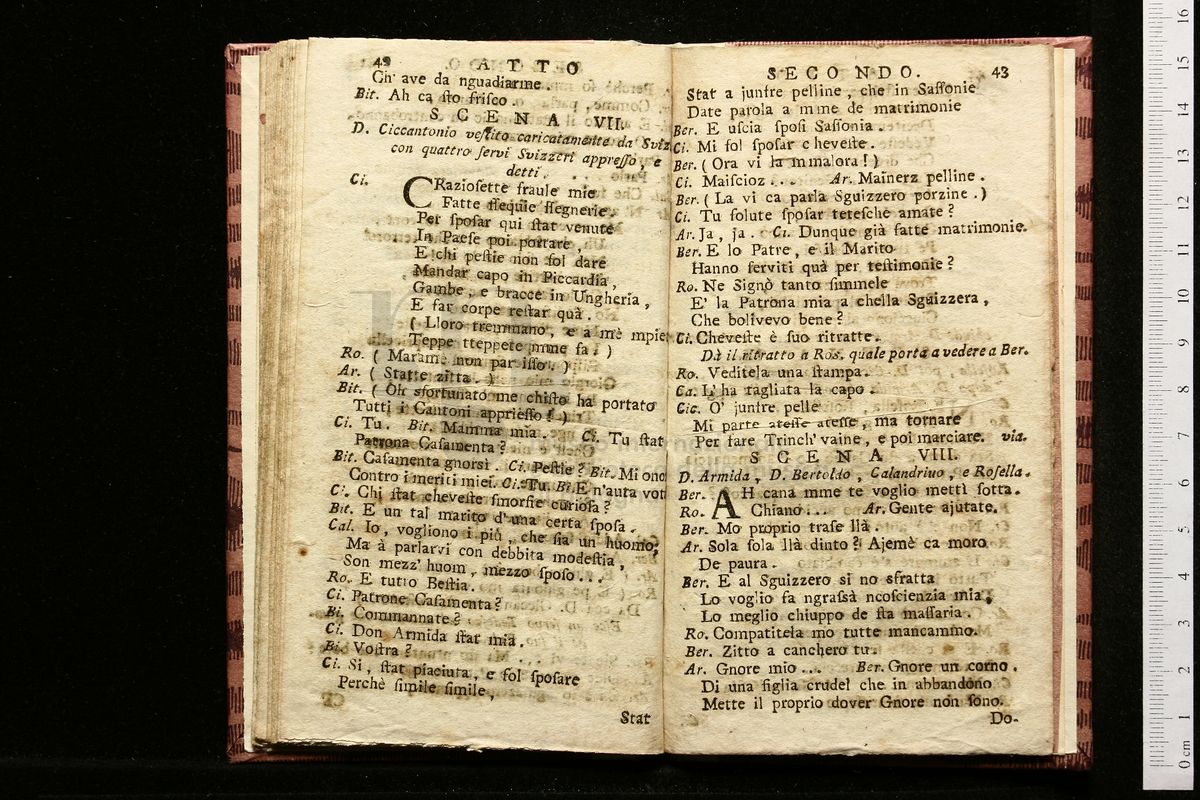 42 A T T O
Ch' ave da nguadiarme.
Bit. Ah ca sto frisco.
S C E N A VII.
D. Ciccantonio vestito caricatamente da Sviz
con quattro servi Svizzeri appresso, e
detti.
Ci. CRaziosette fraule mie
Fatte ssequie ssegnerie.
Per sposar qui stat venute
In Paese poi portare
E chi pestie non sol dare
Mandar capo in Piccardia,
Gambe, e bracce in Ungheria,
E far corpe restar quà.
( Lloro tremmano, e a mè mpie
Teppe tteppete mme fa. )
Ro. ( Marame non par isso. )
Ar. ( Statte zitta. )
Bit. ( Oh sfortunato me chisto ha portato
Tutti i Cantoni appriesso! )
Ci. Tu. Bit. Mamma mia. Ci. Tu stat
Patrona Casamenta?
Bit. Casamenta gnorsì. Ci. Pestie? Bit. Mi ono
Contro i meriti miei. Ci. Tu. Bi. E n'auta vot
Ci. Chi stat cheveste smorfie curiosa?
Bit. E un tal marito d'una certa sposa.
Cal. Io, vogliono i più, che sia un huomo;
Ma à parlarvi con debbita modestia,
Son mezz' huom, mezzo sposo...
Ro. E tutto Bestia.
Ci. Patrone Casamenta?
Bi. Commannate?
Ci. Don Armida stat mia.
Bi. Vostra?
Ci. Si, stat piaciuta, e sol sposare
Perchè simile simile,
Stat
S E C O N D O. 43
Stat a junfre pelline, che in Sassonie
Date parola a mme de matrimonie
Ber. E uscia sposi Sassonia.
Ci. Mi sol sposar cheveste.
Ber. ( Ora vi la mmalora! )
Ci. Maiscioz... Ar. Mainerz pelline.
Ber. ( La vi ca parla Sguizzero porzine. )
Ci. Tu solute sposar tetesche amate?
Ar. Ja, ja. Ci. Dunque già fatte matrimonie.
Ber. E lo Patre, e il Marito
Hanno serviti quà per testimonie?
Ro. Ne Signò tanto simmele
E' la Patrona mia a chella Sguizzera,
Che bolivevo bene?
Ci. Cheveste è suo ritratte.
Dà il ritratto a Ros. quale porta a vedere a Ber.
Ro. Veditela una stampa.
Ca. L' ha tagliata la capo.
Cic. O' junfre pelle
Mi parte atesse atesse, ma tornare
Per fare Trinch' vaine, e poi marciare. via.
S C E N A VIII.
D. Armida, D. Bertoldo, Calandrino, e Rosella.
Ber. AH cana mme te voglio mettì sotta.
Ro. Chiano... Ar. Gente ajutate.
Ber. Mo proprio trase llà.
Ar. Sola sola llà dinto? Ajemè ca moro
De paura.
Ber. E al Sguizzero si no sfratta
Lo voglio fa ngrassà ncoscienzia mia;
Lo meglio chiuppo de sta massaria.
Ro. Compatitela mo tutte mancammo.
Ber. Zitto a canchero tu.
Ar. Gnore mio... Ber. Gnore un corno.
Di una figlia crudel che in abbandono
Mette il proprio dover Gnore non sono.
Do-